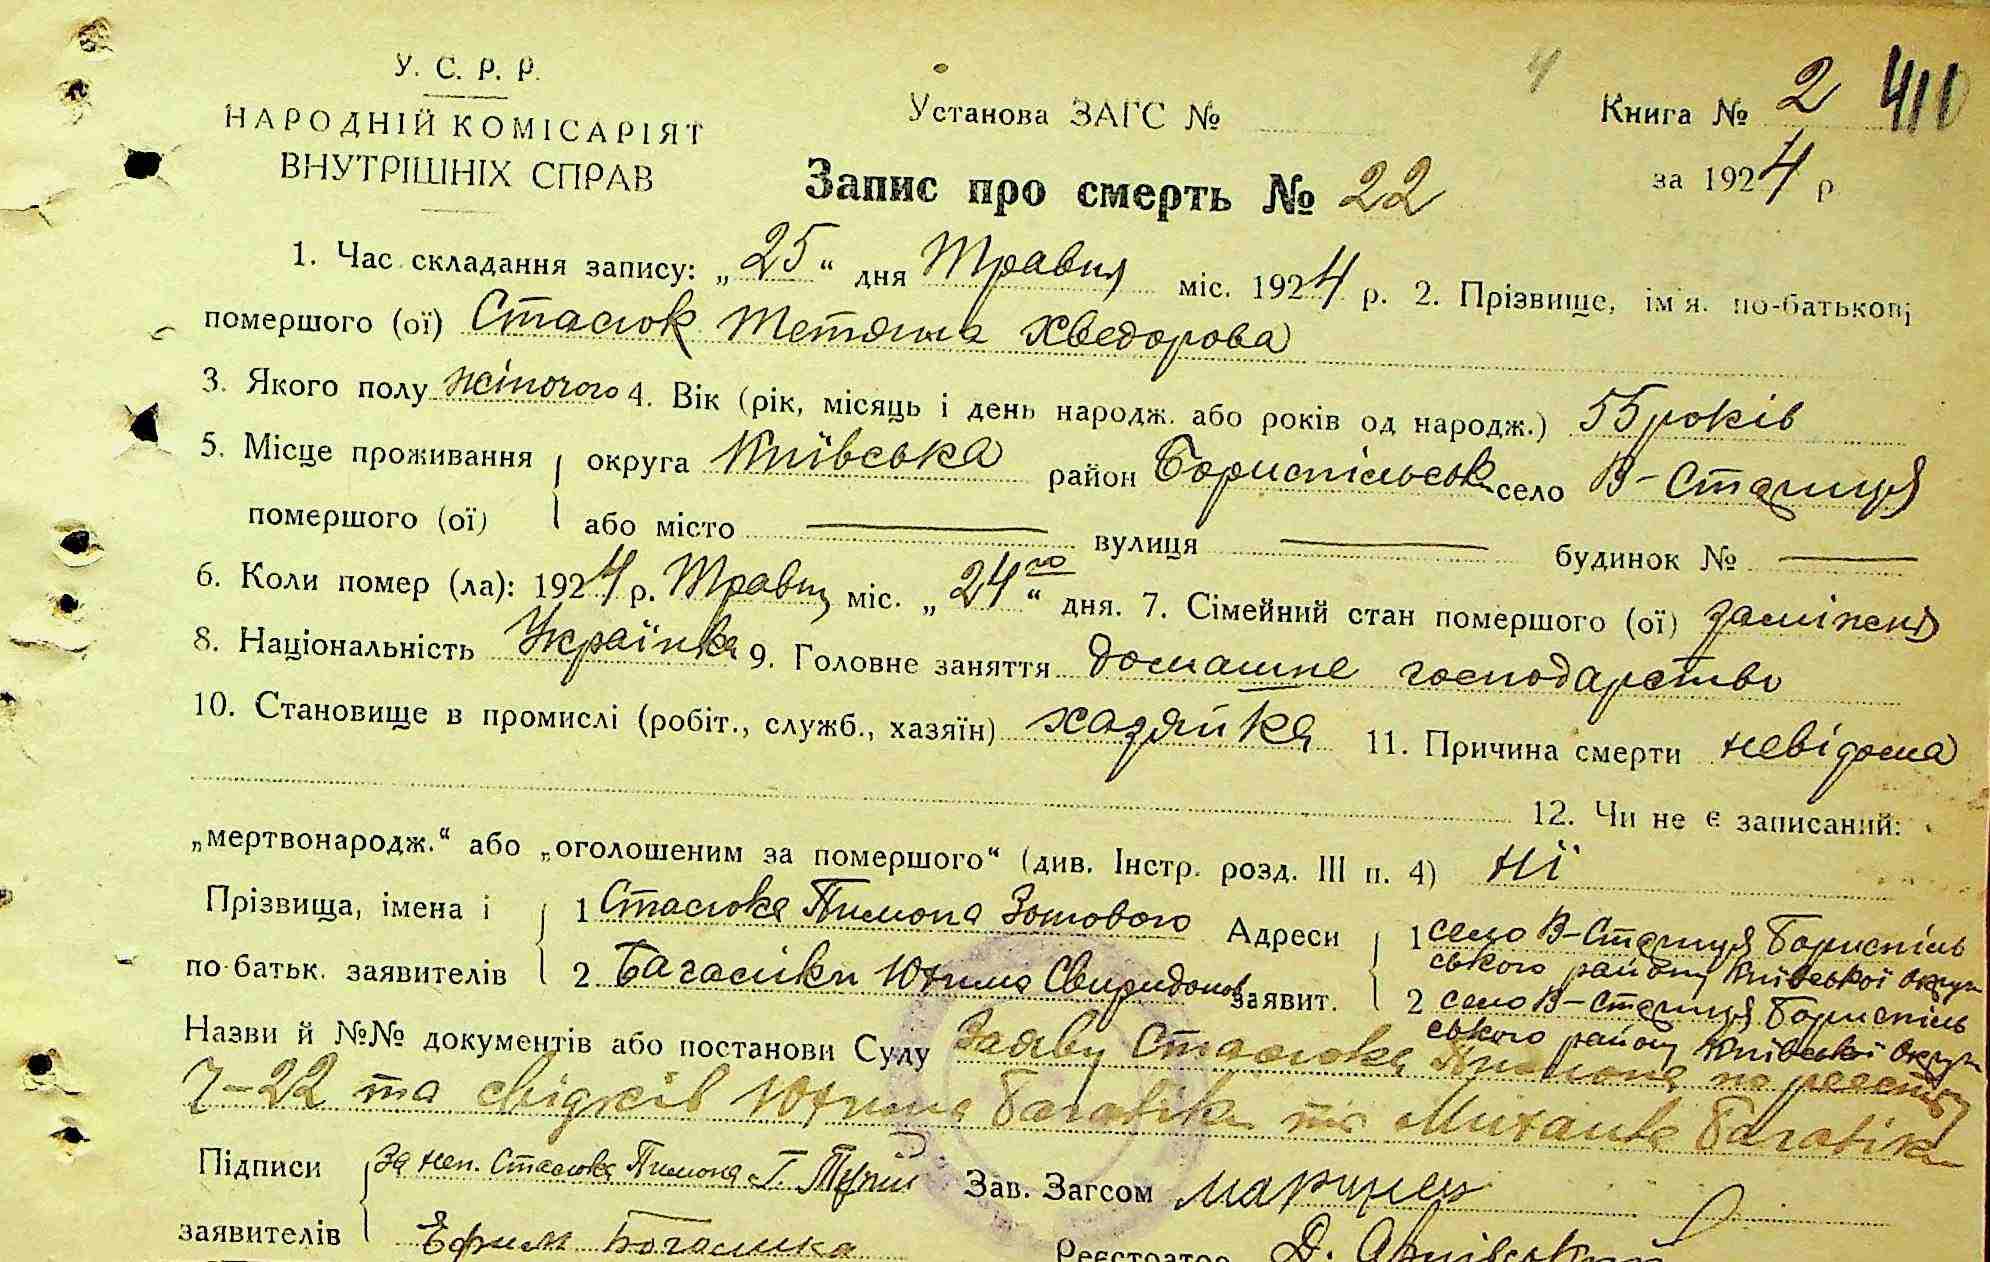 У. С. Р. Р.
НАРОДНІЙ КОМІСАРІЯТ
ВНУТРІШНІХ СПРАВ
Установа ЗАГС №
Книга № 2 410
за 1924 р
Запис про смерть № 22
1. Час складання запису: „25“ дня Травня міс. 1924 р. 2. Прізвище, ім'я, по-батькові
помершого (ої) Стасюк Тетяна Хведорова
3. Якого полу жіночого 4. Вік (рік, місяць і день народж. або років од народж.) 55 років
5. Місце проживання округа Київська район Бориспільськ село В-Стариця
помершого (ої) або місто — вулиця — будинок № —
6. Коли помер (ла): 1924 р. Травня міс. „24го“ дня. 7. Сімейний стан помершого (ої) заміжня
8. Національність Українка 9. Головне заняття домашне господарство
10. Становище в промислі (робіт., служб., хазяїн) хазяйка 11. Причина смерти невідома
12. Чи не є записаний:
„мертвонародж.“ або „оголошеним за помершого“ (див. Інстр. розд. III п. 4) нї
Прізвища, імена і по-батьк. заявителів
1 Стасюка Пимона Зотового
2 Юхима
Адреси заявит.
1 село В-Стариця Бориспіль
ського району Київської округи
2 село В-Стариця Бориспіль
ського району Київської округи
Назви й №№ документів або постанови Суду Заяву Стасюка Пимона по реєстру
7-22 та свідків Юхима та Михайла
Підписи За неп. Стасюка Пимона Г.
заявителів Ефим
Зав. Загсом
Реєстратор Д.